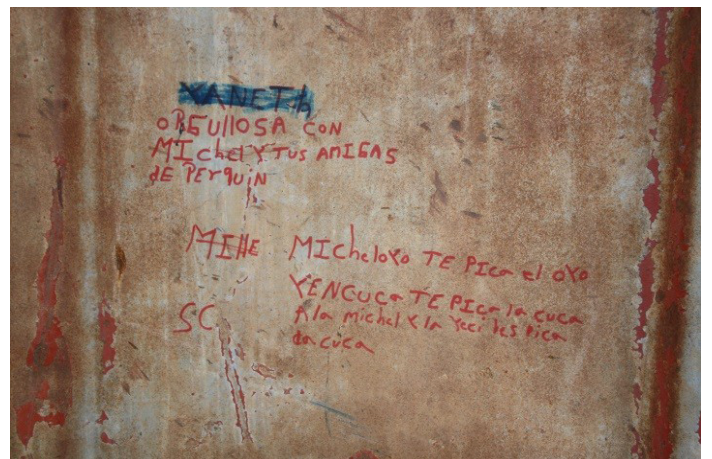 XANETh
ORGUllOSA CON
MIchel Y TUS AMIGAS
dE PERquiN
MIllE MIcheloYo TE PIca el oYo
YENCUCa TE PIca la cuca
A la michel Y la Yeci les pica
da cuca
SC